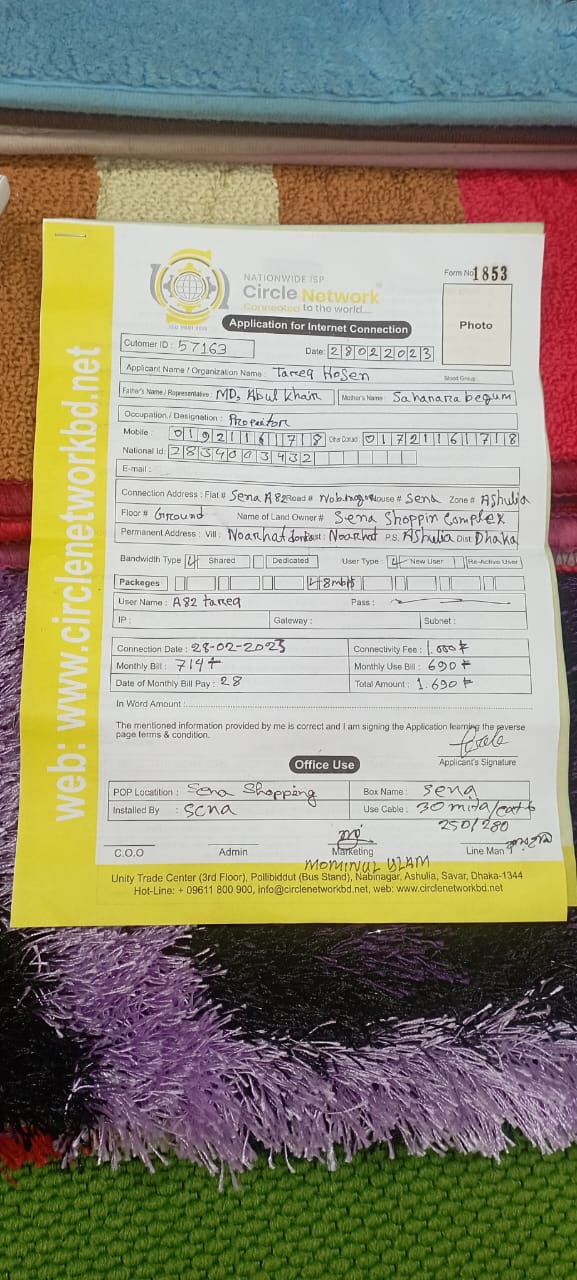 NATIONWIDE ISP
Circle Network
Connected to the world....
Form No 1853
Application for Internet Connection
Photo
Cutomer ID : 57163
Date: 28022023
Applicant Name / Organization Name : Tareq Hosen
Blood Group :
Father's Name / Representative : MD. Abul khair Mother's Name : Sahanara begum
Occupation / Designation : Propaitor
Mobile : 01921161718 01721161718
National Id: 2834003432
E-mail :
Connection Address : Flat # Sena A82 Road # House # Sena Zone # Ashulia
Floor # Ground Name of Land Owner # Sena Shoppin Complex
Permanent Address : Vill : Noarhat Noarhat P.S. Ashulia Dist: Dhaka
Bandwidth Type Shared Dedicated User Type : New User Re-Active User
Packeges 8mbps
User Name : A82 tareq Pass :
IP : Gateway : Subnet :
Connection Date : 28-02-2023 Connectivity Fee : 1.000 ৳
Monthly Bill : 714৳ Monthly Use Bill : 690 ৳
Date of Monthly Bill Pay : 28 Total Amount : 1.690 ৳
In Word Amount :
The mentioned information provided by me is correct and I am signing the Application learning the reverse
page terms & condition.
Applicant's Signature
Office Use
POP Locatition : Sena Shopping Box Name : Sena
Installed By : Sena Use Cable : 30 mita/cat 6
250/280
C.O.O Admin Marketing Line Man
MOMINUL
Unity Trade Center (3rd Floor), Pollibiddut (Bus Stand), Nabinagar, Ashulia, Savar, Dhaka-1344
Hot-Line: + 09611 800 900, info@circlenetworkbd.net, web: www.circlenetworkbd.net
web: www.circlenetworkbd.net